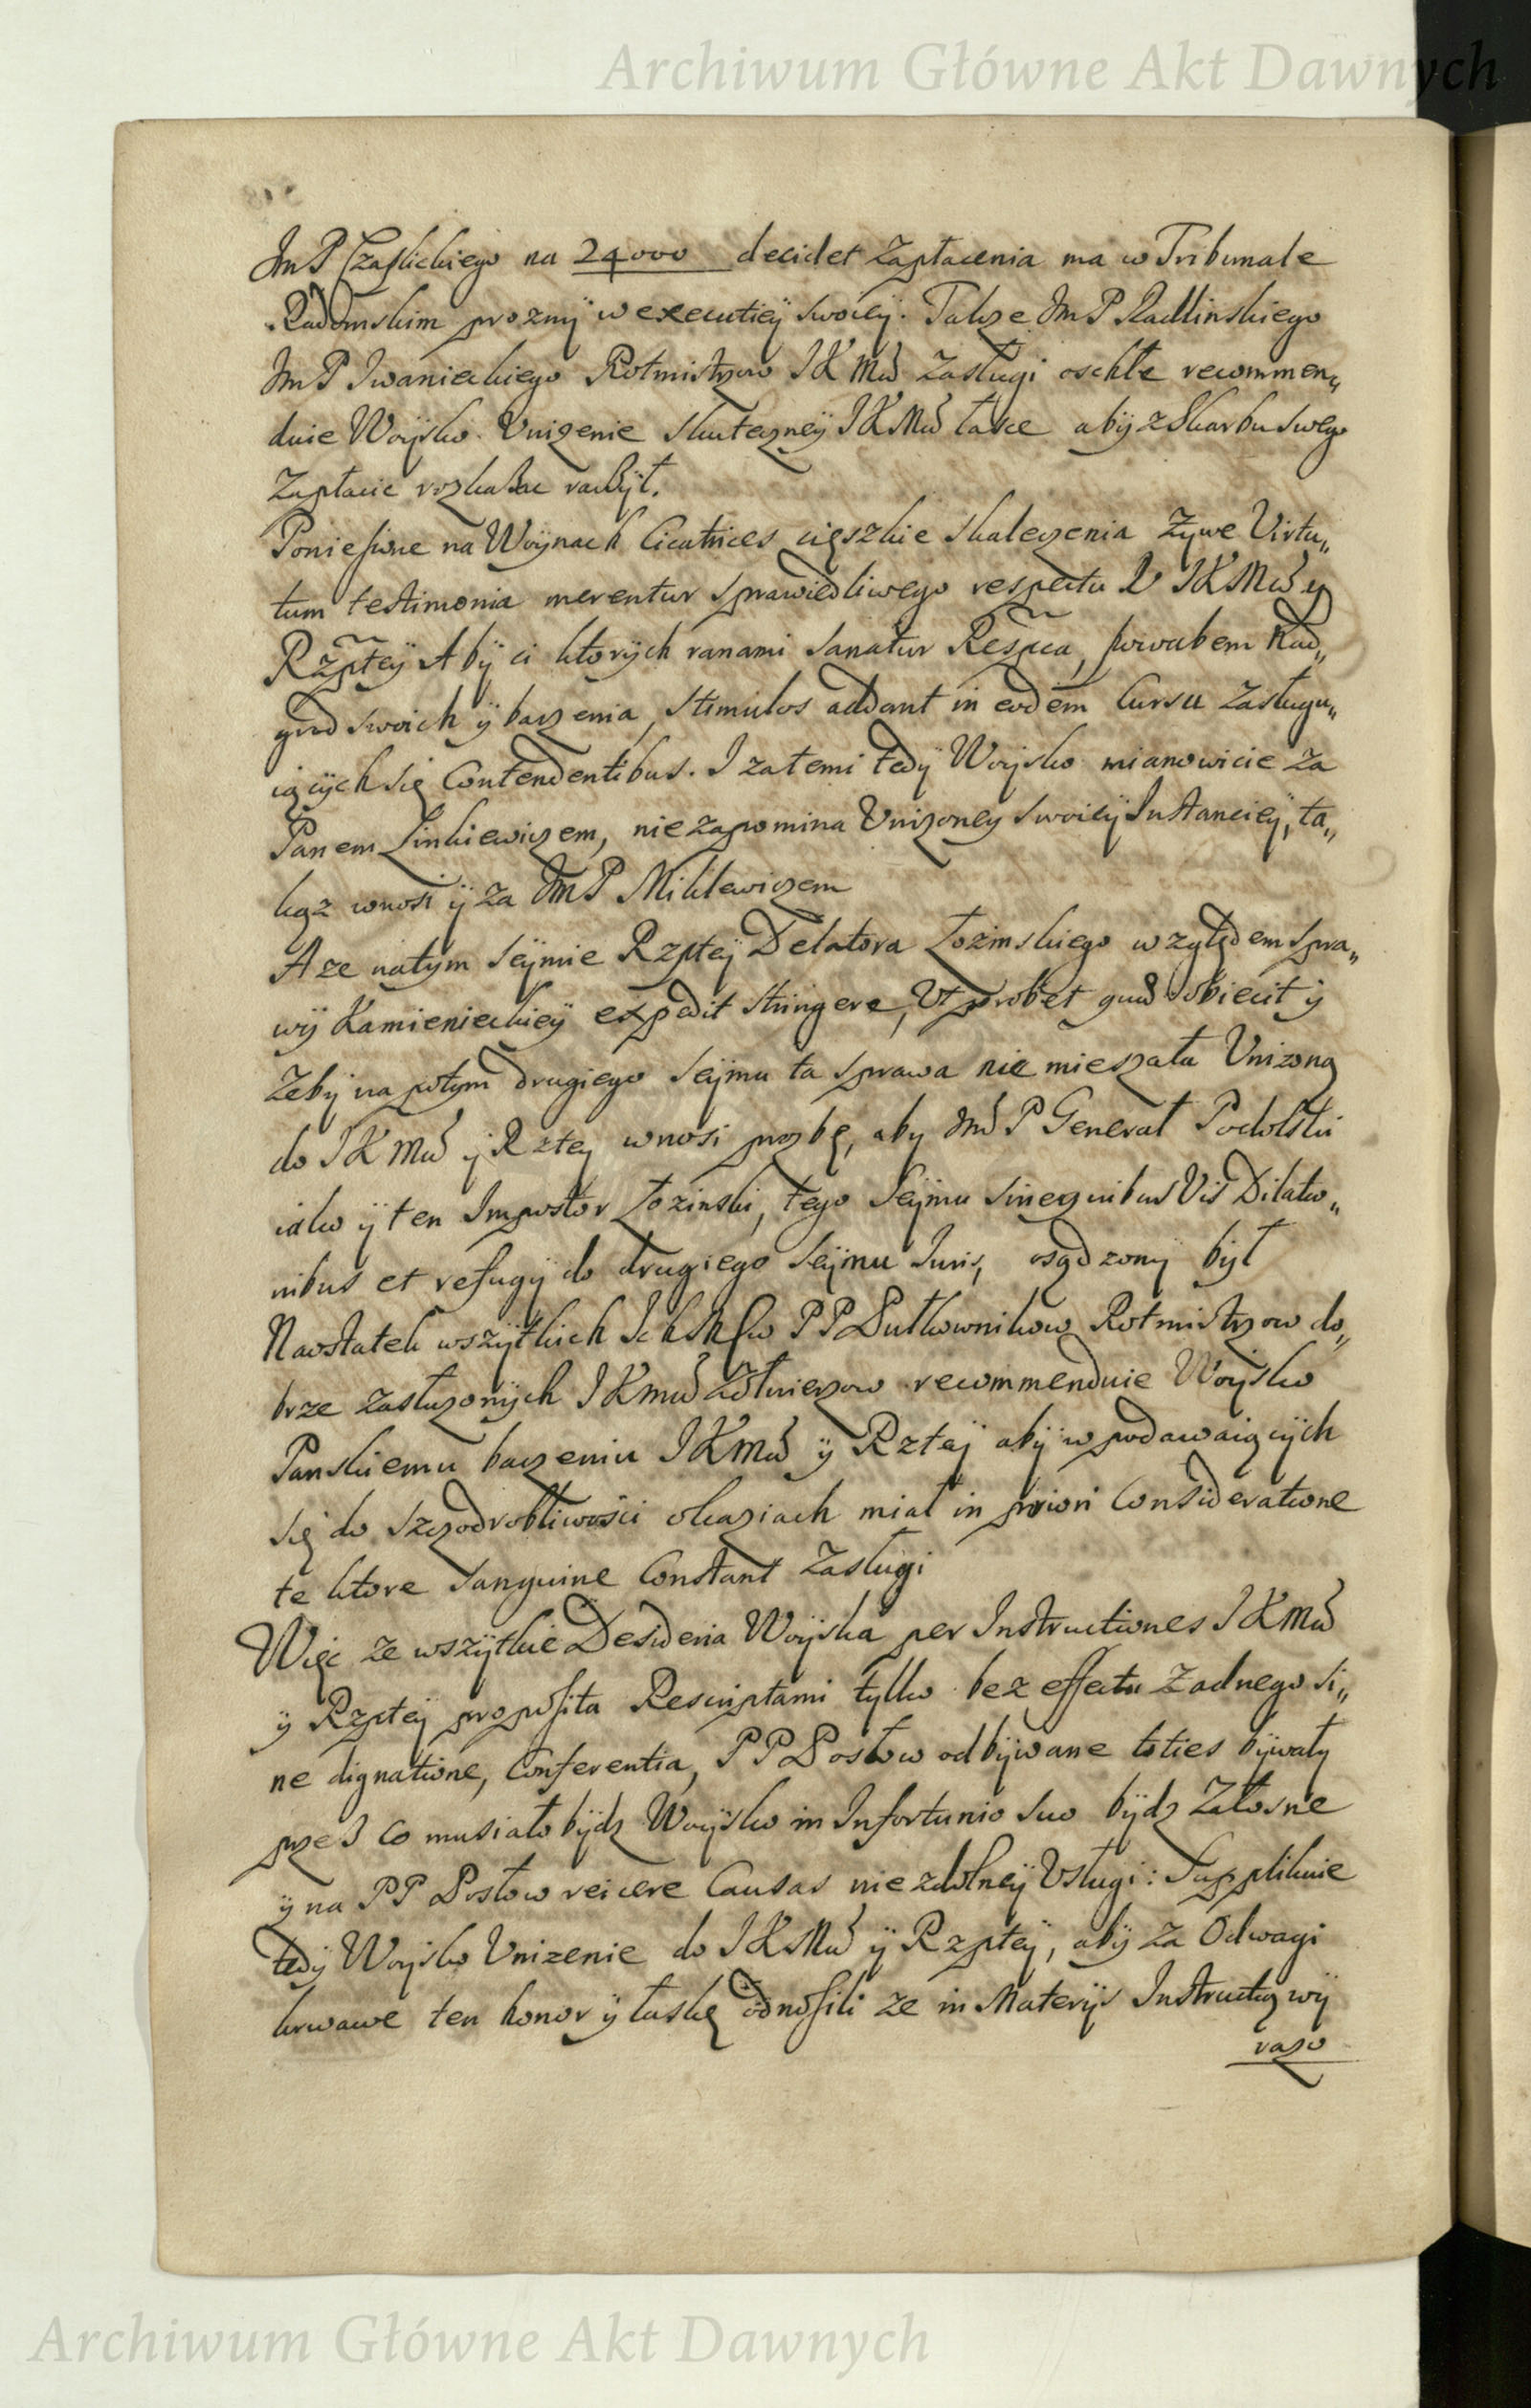 Archiwum Główne Akt Dawnych
JmP Czaplickiego na 24000 decidet Zapłacenia ma w Tribunale
Radomskim prozny w executiey swoiey. Takze JmP Radlinskiego
JmP Iwanickiego Rotmistrzow JKMci Zasługi oschłe recommen„
duie Woysko Unizenie skuteczney JKMci łasce aby z Skarbu swego
Zapłacic rozkazac raczył.
Poniesione na Woynach Cicatrices cięszkie skaleczenia Zywe Virtu„
tum testimonia merentur sprawiedliwego respectu V JKMci y
Rzptey Aby ci ktorych ranami sanatur Respca, powabem Nad„
grod swoich y baczenia, stimulos addant in eodem Cursu zasługu„
iących się Contendentibus. I za temi tedy Woysko mianowicie za
Panem Linkiewiczem, nie zapomina Unizoney swoiey Instanciey, ta„
kąz wnosi y za JmP Miklewiczem
A ze na tym Seymie Rzptey Delatora Łozinskiego względem spra„
wy Kamienieckiey expedit stringere, Ut probet quod obiecit y
Zeby na potym drugiego Seymu ta sprawa nie mieszała Unizoną
do JKMci y Rztey wnosi prozbę, aby JmP Generał Podolski
iako y ten Impostor Łozinski, tego Seymu sine quibus Vis Dilatio„
nibus et refugy do drugiego Seymu Juris, osądzony był
Naostatek wszytkich Ich Msciow PP Pułkownikow Rotmistrzow do„
brze zasłuzonych JKmci Zołnierzow recommenduie Woysko
Panskiemu baczeniu JKMci y Rztey aby w podawaiących
się do szczodrobliwosci okaziach miał in priori Consideratione
te ktore sanguine Constant Zasługi
Więc ze wszytkie Desideria Woyska per Instructiones JKMci
y Rzptey proposita Rescriptami tylko bez effectu zadnego si„
ne dignatione, Conferentia, PP Posłow odbywane toties bywały
przes co musiało bydz Woysko in Infortunio suo bydz Załosne
y na PP Posłow reicere Causas niezdolney Usługi: Supplikuie
tedy Woysko Unizenie do JKMci y Rzptey, aby za Odwagi
krwawe ten honor y łaskę odnosili ze in Materiis Instructią wy
razo
Archiwum Główne Akt Dawnych